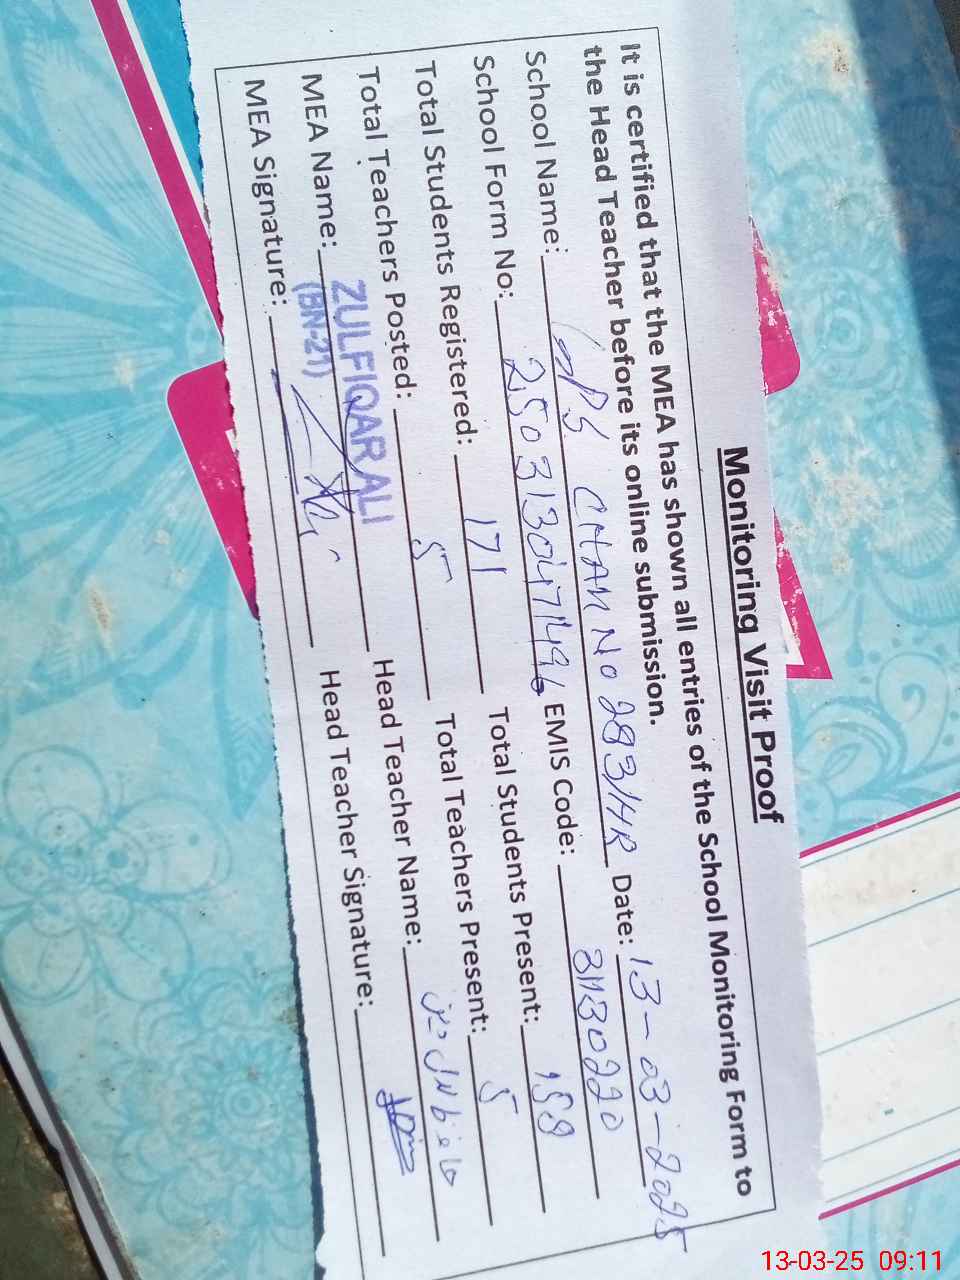 Monitoring Visit Proof
It is certified that the MEA has shown all entries of the School Monitoring Form to
the Head Teacher before its online submission.
School Name: GPS CHAK NO 283/HR Date: 13-03-2025
School Form No: 2503130471496 EMIS Code: 31130220
Total Students Registered: 171 Total Students Present: 158
Total Teachers Posted: 5 Total Teachers Present: 5
MEA Name: ZULFIQAR ALI Head Teacher Name:
(BN-21)
MEA Signature: Head Teacher Signature:
13-03-25 09:11